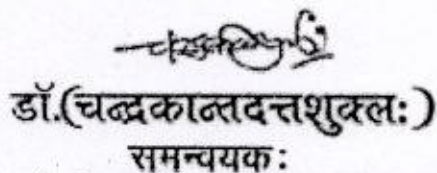 डॉ.(चन्द्रकान्तदत्तशुक्लः)
समन्वयकः